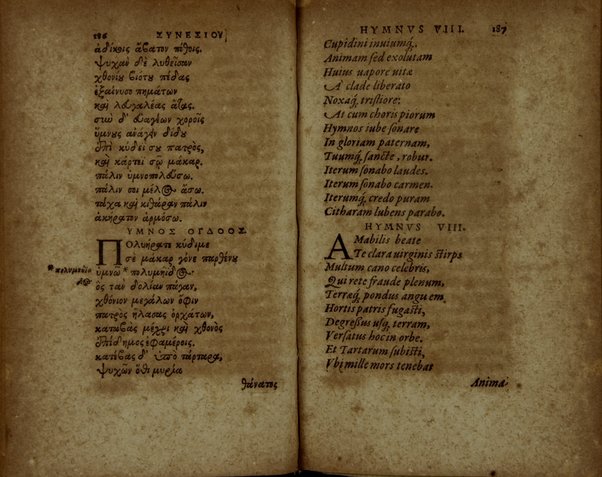 186 ΣΥΝΕΣΙΟΥ
ἀδίκοις ἄβατον πόθοις.
Ψυχὰν δὲ λυθεῖσαν
χθονίου βιότου πέδας
ἐξαίνυσο πημάτων
καὶ λευγαλέας ἄτας.
σὺν δ' εὐαγέων χοροῖς
ὕμνους ἀνάγειν δίδου
ἐπὶ κύδει σου πατρὸς,
καὶ κάρτει σῷ μάκαρ.
πάλιν ὑμνοπολεύσω.
πάλιν σοι μέλος ἄσω.
τάχα καὶ κιθάραν πάλιν
ἀκήρατον ἁρμόσω.
ΥΜΝΟΣ ΟΓΔΟΟΣ.
Πολυήρατε κύδιμε
σὲ μάκαρ γόνε παρθένου
ὑμνῶ * πολυμήδος
ὃς τὰν δολίαν πάγαν,
χθόνιον μεγάλων ὄφιν
πατρὸς ἤλασας ὀρχάτων,
κατέβας μέχρι καὶ χθονὸς
ἐπίδημος ἐφαμέροις.
κατέβας δ' ὑπὸ τάρταρα,
ψυχῶν ὅθι μυρία
θάνατος
HYMNVS VIII. 187
Cupidini inuiumq́.
Animam sed exolutam
Huius uapore uitæ
A clade liberato
Noxaq́. tristiore:
At cum choris piorum
Hymnos iube sonare
In gloriam paternam,
Tuumq́, sancte, robur.
Iterum sonabo laudes.
Iterum sonabo carmen.
Iterumq́, credo puram
Citharam lubens parabo.
HYMNVS VIII.
AMabilis beate
Te clara uirginis stirps
Multum cano celebris,
Qui rete fraude plenum,
Terræq́, pondus anguem,
Hortis patris fugasti,
Degressus usq́, terram,
Versatus hoc in orbe.
Et Tartarum subisti,
Vbi mille mors tenebat
Anima